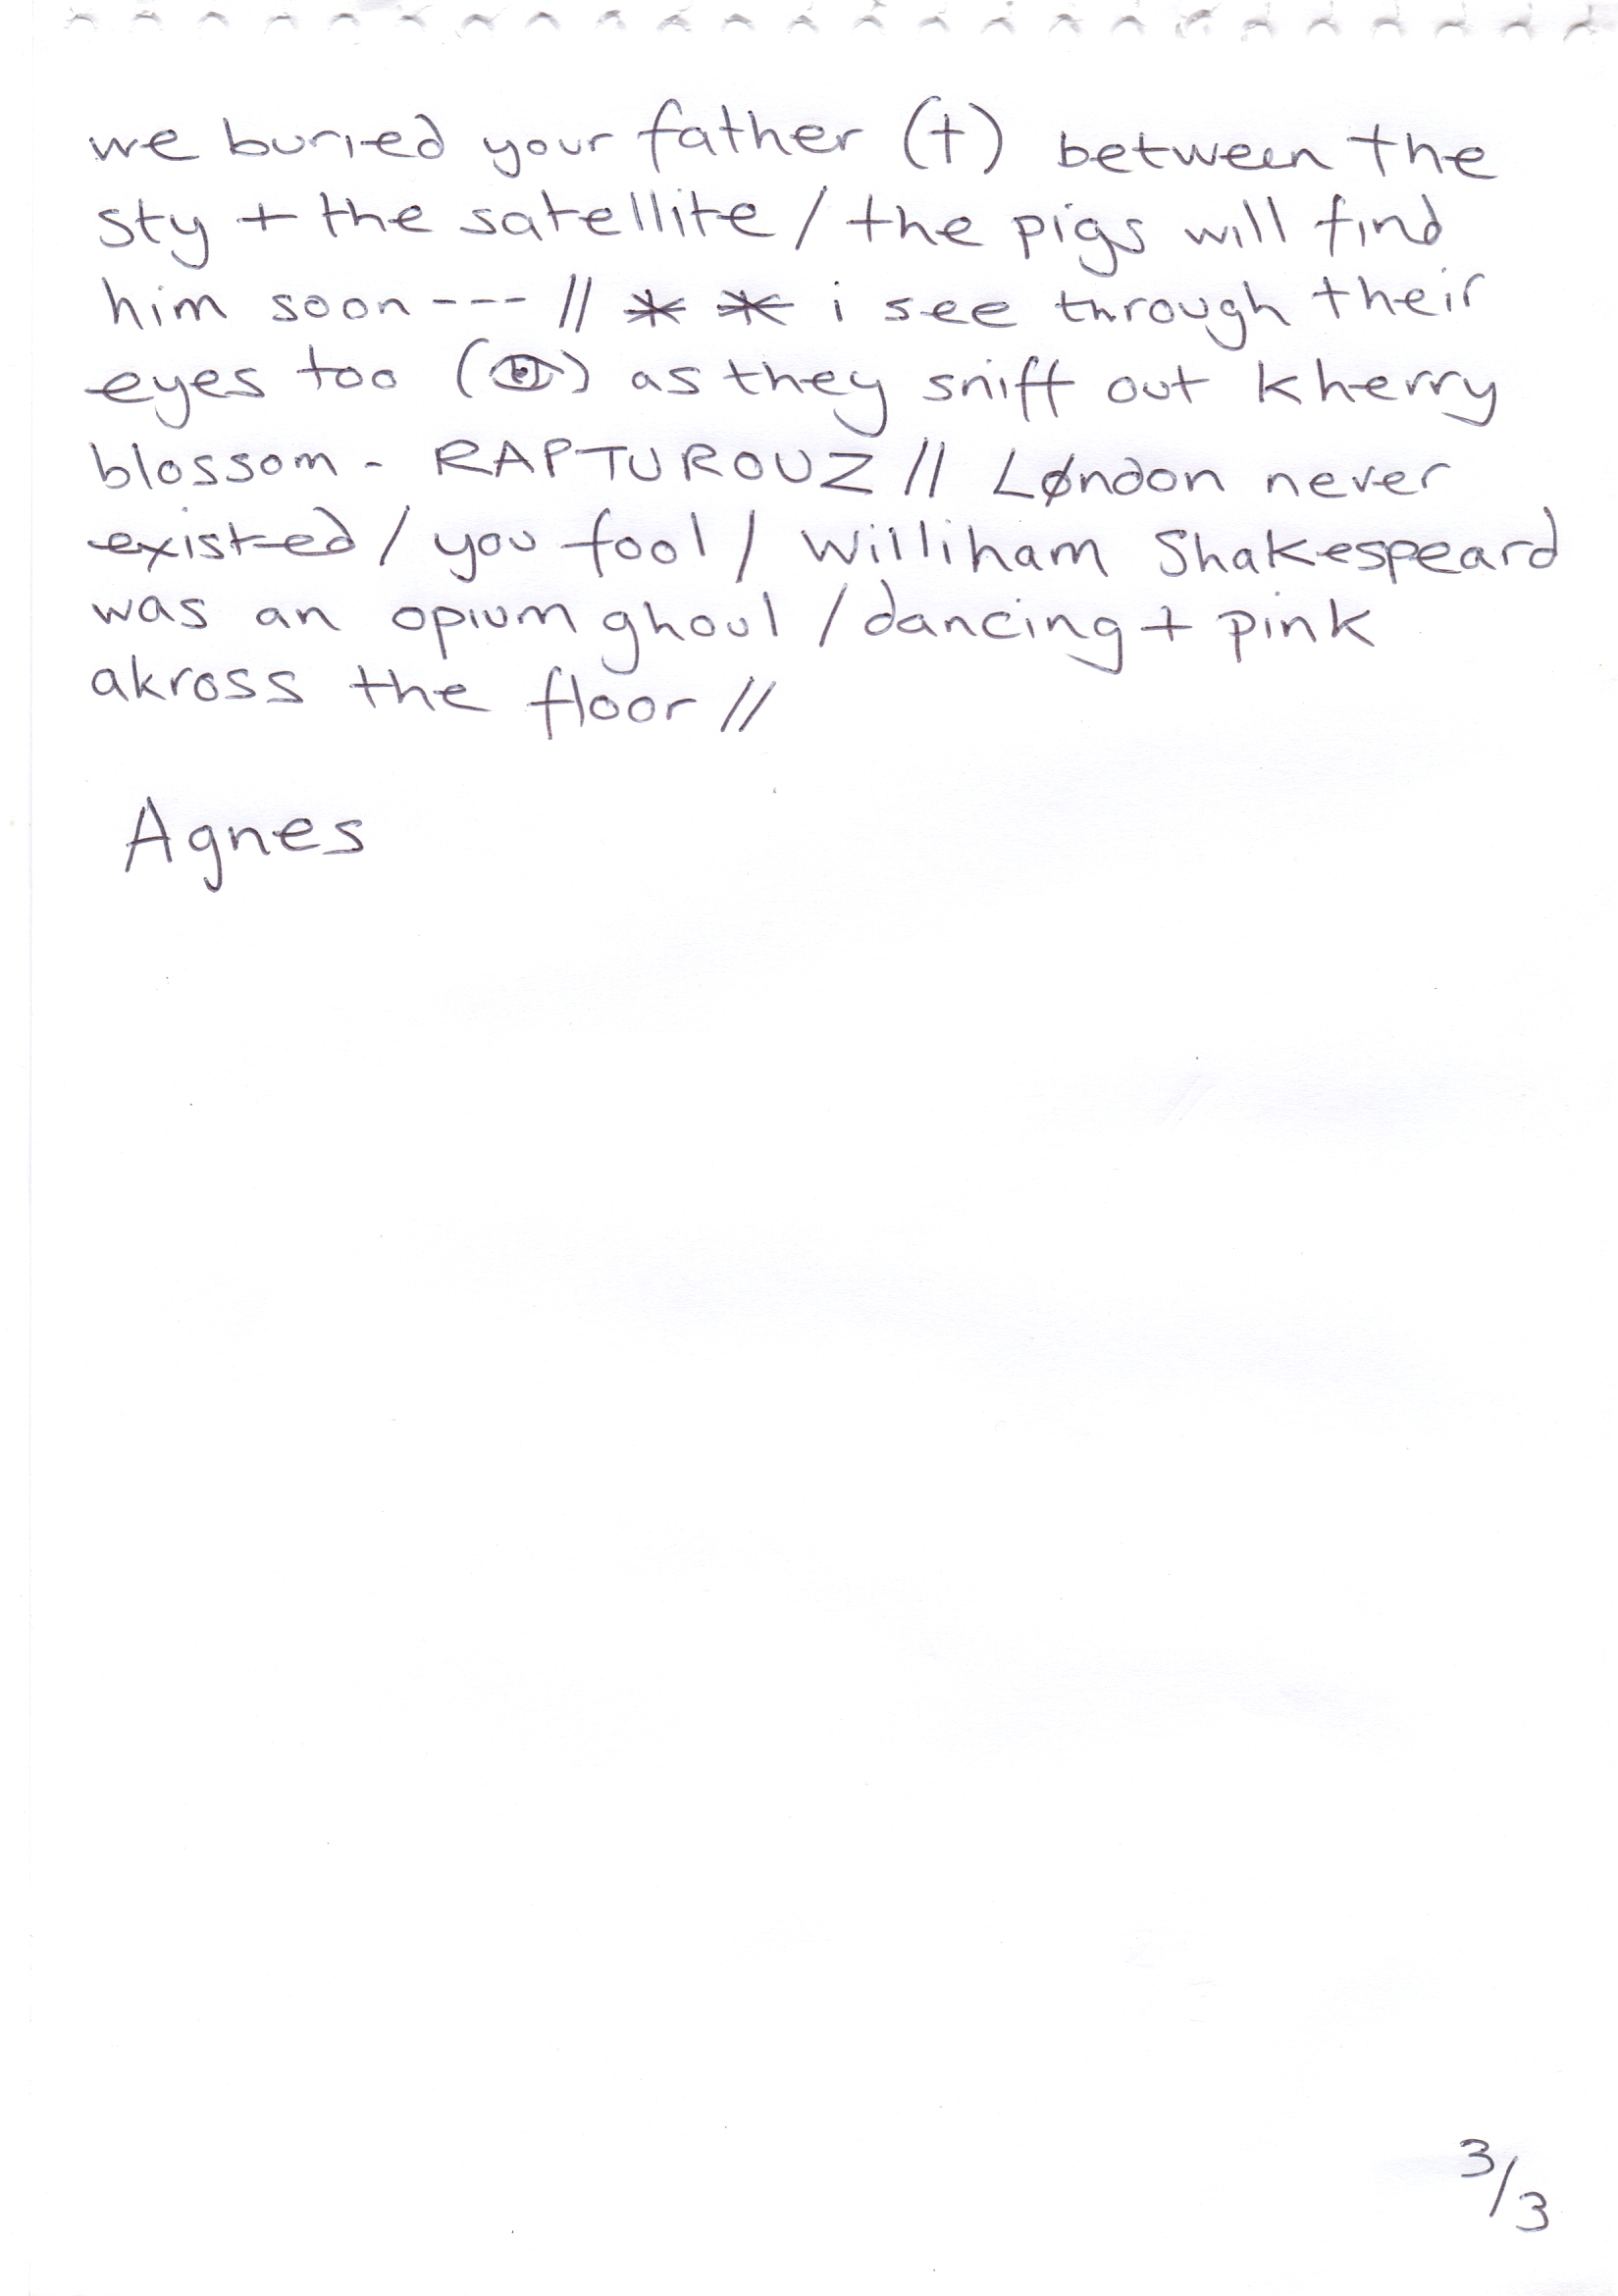 we buried your father (†) between the
sty + the satellite / the pigs will find
him soon --- // * * i see through their
eyes too (👁) as they sniff out kherry
blossom - RAPTUROUZ // Løndon never
existed / you fool / Williham Shakespeard
was an opium ghoul / dancing + pink
akross the floor //
Agnes
3/3